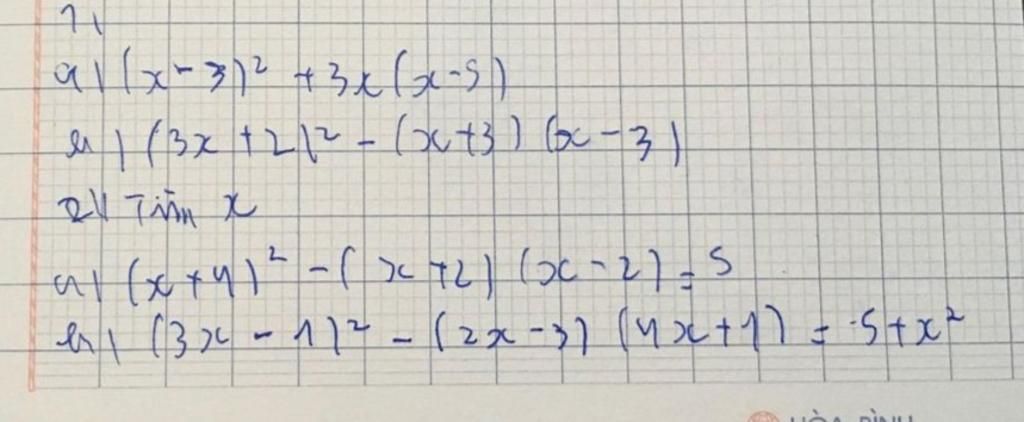 1)
a) (x-3)² + 3x(x-5)
b) (3x+2)² - (x+3)(x-3)
2) Tìm x
a) (x+4)² - (x+2)(x-2) = 5
b) (3x-1)² - (2x-3)(4x+1) = 5+x²
HÒA BÌNH